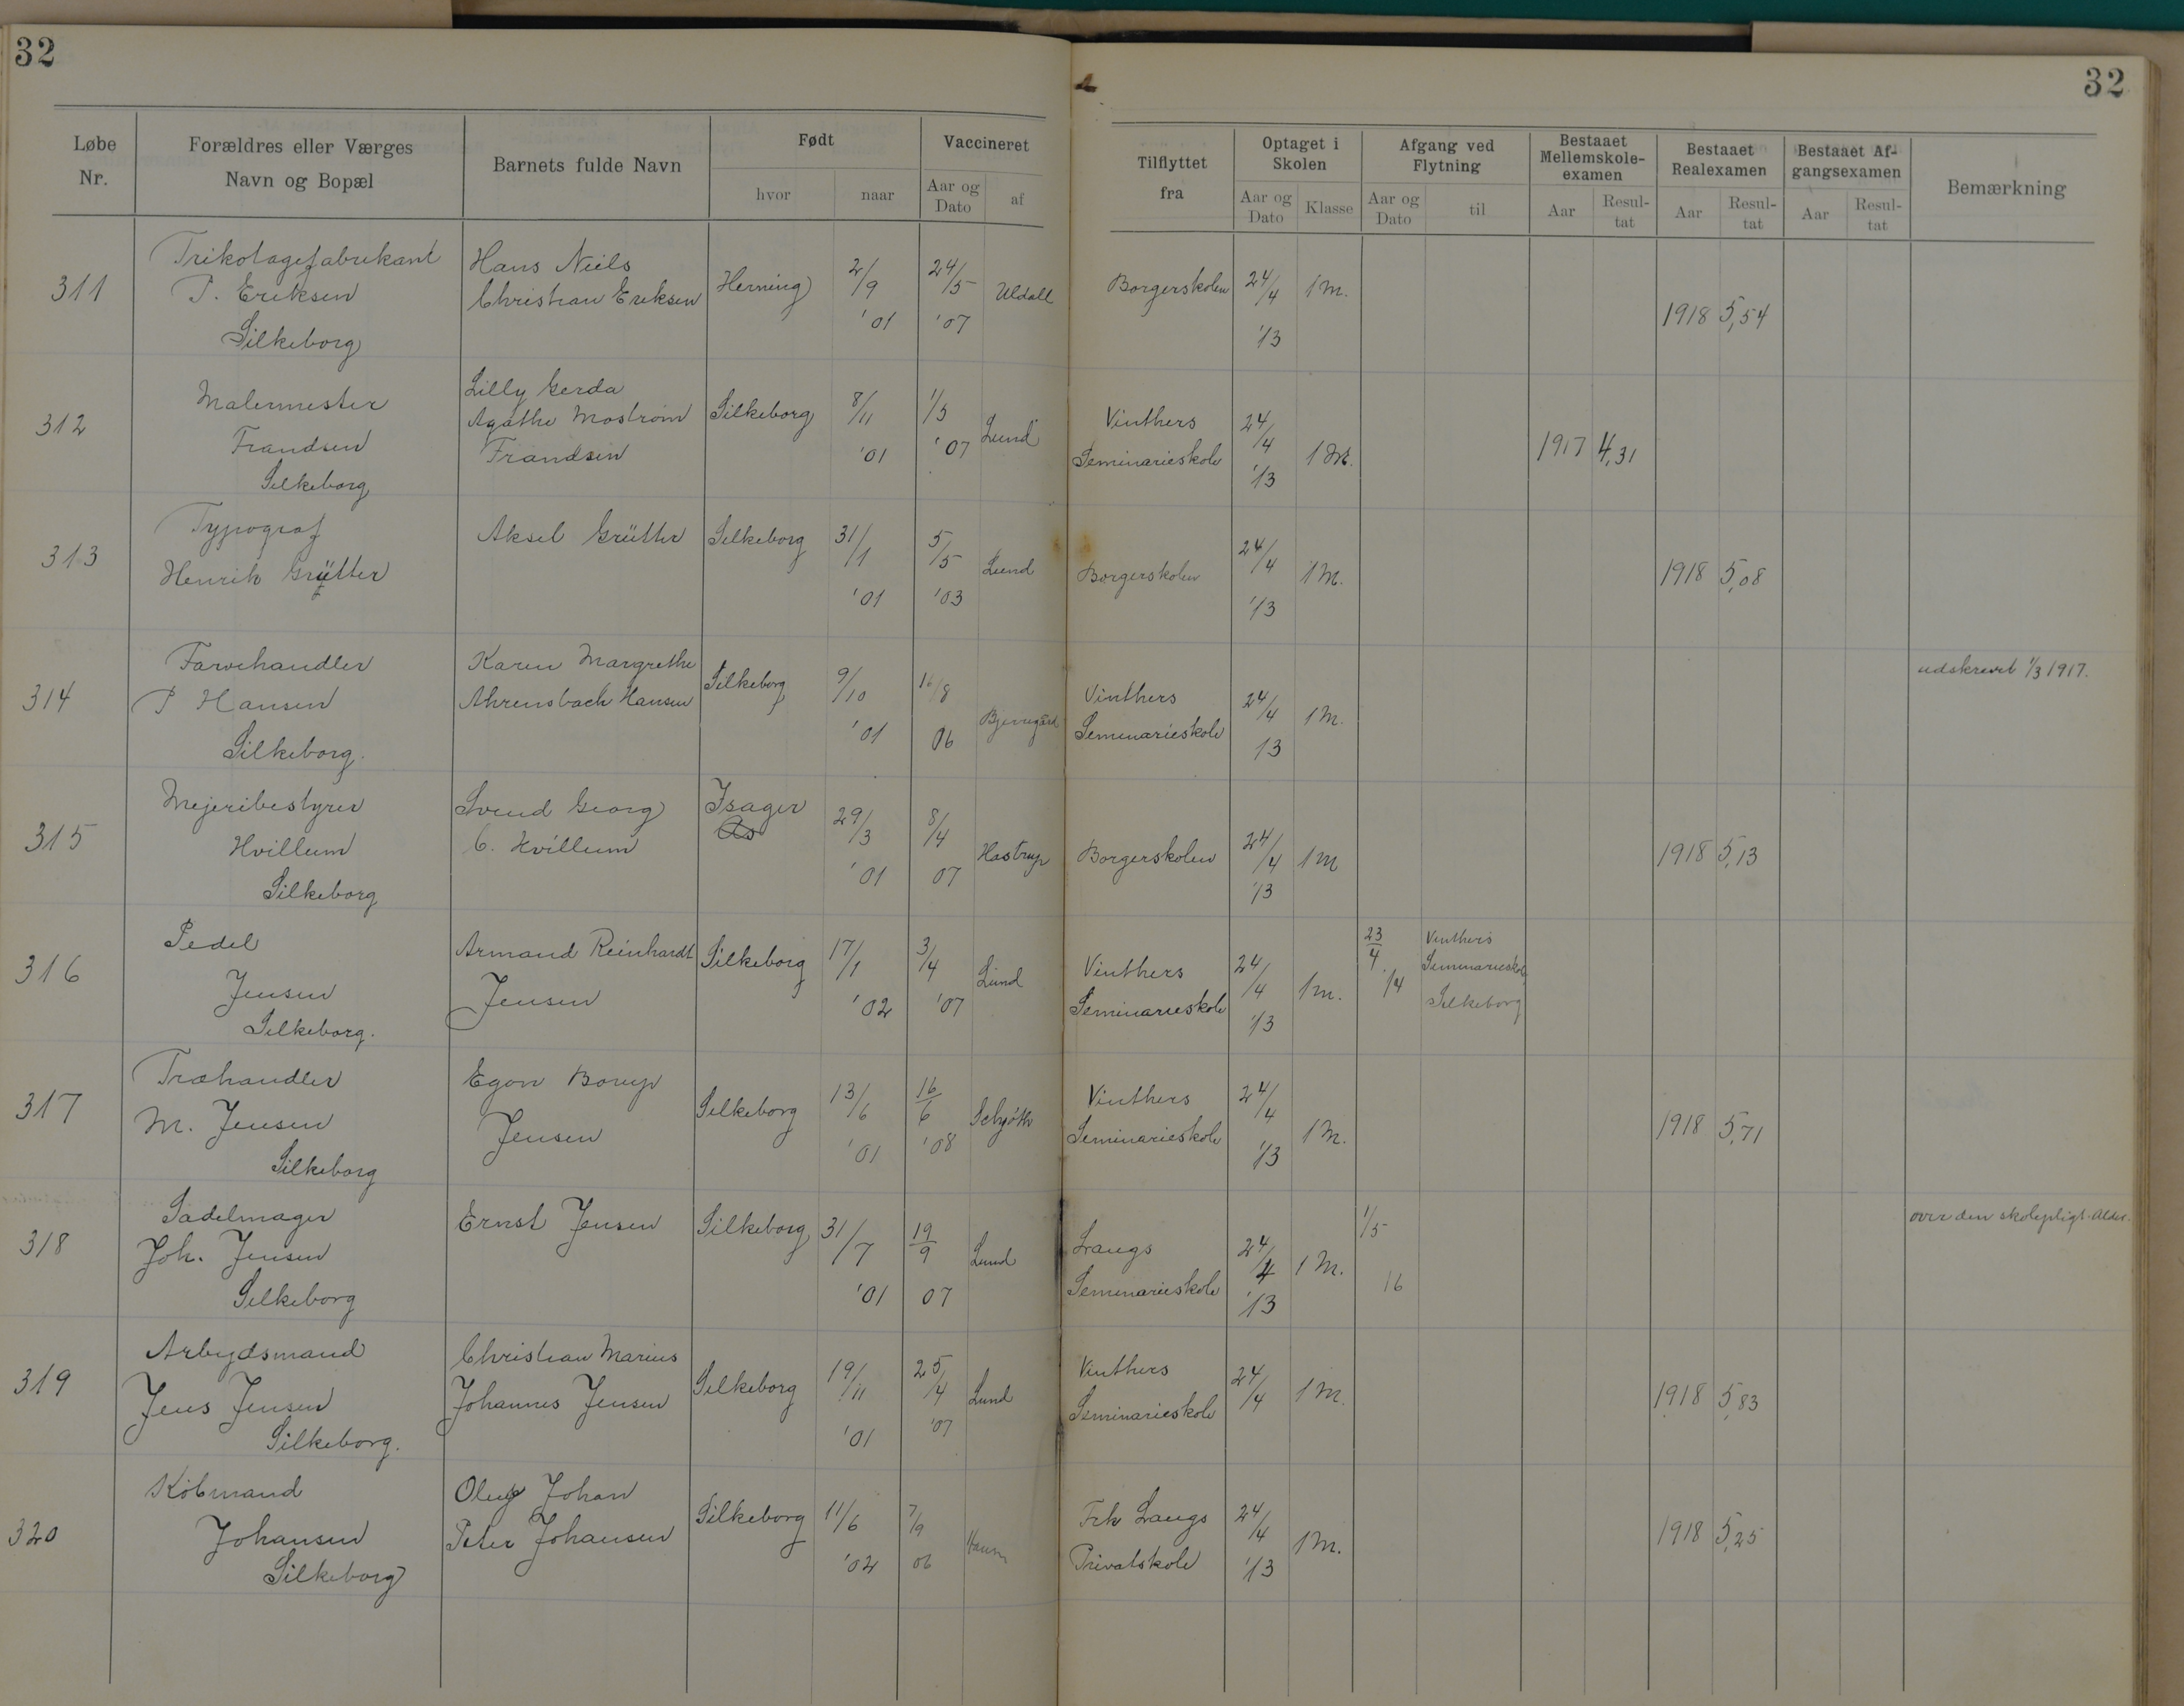 32
32
Løbe Nr.
Forældres eller Værges Navn og Bopæl
Barnets fulde Navn
Født
hvor
naar
Vaccineret
Aar og Dato
af
Tilflyttet fra
Optaget i Skolen
Aar og Dato
Klasse
Afgang ved Flytning
Aar og Dato
til
Bestaaet Mellemskole-examen
Aar
Resul-tat
Bestaaet Realexamen
Aar
Resul-tat
Bestaaet Af-gangsexamen
Aar
Resul-tat
Bemærkning
311
Trikotagefabrikant
P. Eriksen
Silkeborg
Hans Niels
Christian Eriksen
Herning
2/9 '01
24/5 '07
Uldall
Borgerskolen
24/4 '13
1 M.
1918 5,54
312
Malermester
Frandsen
Silkeborg
Lilly Gerda
Agathe Mostrøm
Frandsen
Silkeborg
8/11 '01
'07
Lund
Vinthers
Seminarieskole
24/4 '13
1 M.
1917 4,31
313
Typograf
Henrik Grütter
Aksel Grütter
Silkeborg
31/1 '01
5/5 '03
Lund
Borgerskolen
24/4 '13
1 M.
1918 5,08
314
Farvehandler
P Hansen
Silkeborg.
Karen Margrethe
Ahrensbach Hansen
Silkeborg
9/10 '01
16/8 06
Bjerregård
Vinthers
Seminarieskole
24/4 13
1 M.
udskrevet 1/3 1917.
315
Mejeribestyrer
Hvillum
Silkeborg
Svend Georg
C. Hvillum
Isager
29/3 '01
8/4 07
Hastrup
Borgerskolen
24/4 '13
1 M
1918 5,13
316
Pedel
Jensen
Silkeborg.
Armand Reinhardt
Jensen
Silkeborg
17/1 '02
3/4 '07
Lund
Vinthers
Seminarieskole
24/4 '13
1 m.
23/4 14
Vinthers
Seminarieskole
Silkeborg
317
Træhandler
M. Jensen
Silkeborg
Egon Borup
Jensen
Silkeborg
13/6 '01
16/6 '08
Schjøth
Vinthers
Seminarieskole
24/4 '13
1 M.
1918 5,71
318
Sadelmager
Joh. Jensen
Silkeborg
Ernst Jensen
Silkeborg
31/7 '01
19/9 07
Lund
Langs
Seminarieskole
24/4 '13
1 M.
1/5 16
over den skolepligt. Alder.
319
Arbejdsmand
Jens Jensen
Silkeborg.
Christian Marius
Johannes Jensen
Silkeborg
19/11 '01
25/4 '07
Lund
Vinthers
Seminarieskole
24/4
1 M.
1918 5,83
320
Købmand
Johansen
Silkeborg
Oluf Johan
Peter Johansen
Silkeborg
11/6 '02
7/9 06
Frk Langs
Privatskole
24/4 '13
1 M.
1918 5,25